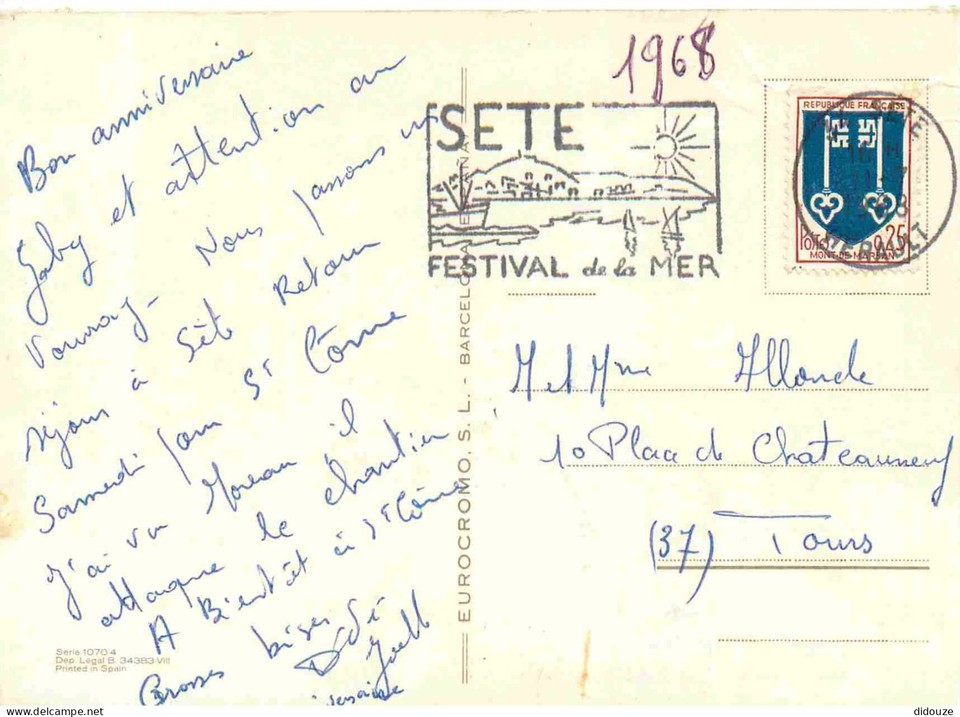 Bon anniversaire
Gaby et attention au
Vouvray - Nous passons un
séjour à Sète Retour
Samedi pour St Côme
J'ai vu Moreau il
attaque le chantier
A Bientôt à St Côme
Grosses bises
Dédé
Joell
iversaire
Serie 1070/4
Dep. Legal B. 34383-VIII
Printed in Spain
EUROCROMO, S. L. - BARCELONA ESPAÑA
1968
SETE
FESTIVAL de la MER
REPUBLIQUE FRANÇAISE
POSTES 0,25
MONT-DE-MARSAN
SETE
16 H
1968
HERAULT
M et Mme Allonde
10 Place de Chateauneuf
(37) Tours
didouze